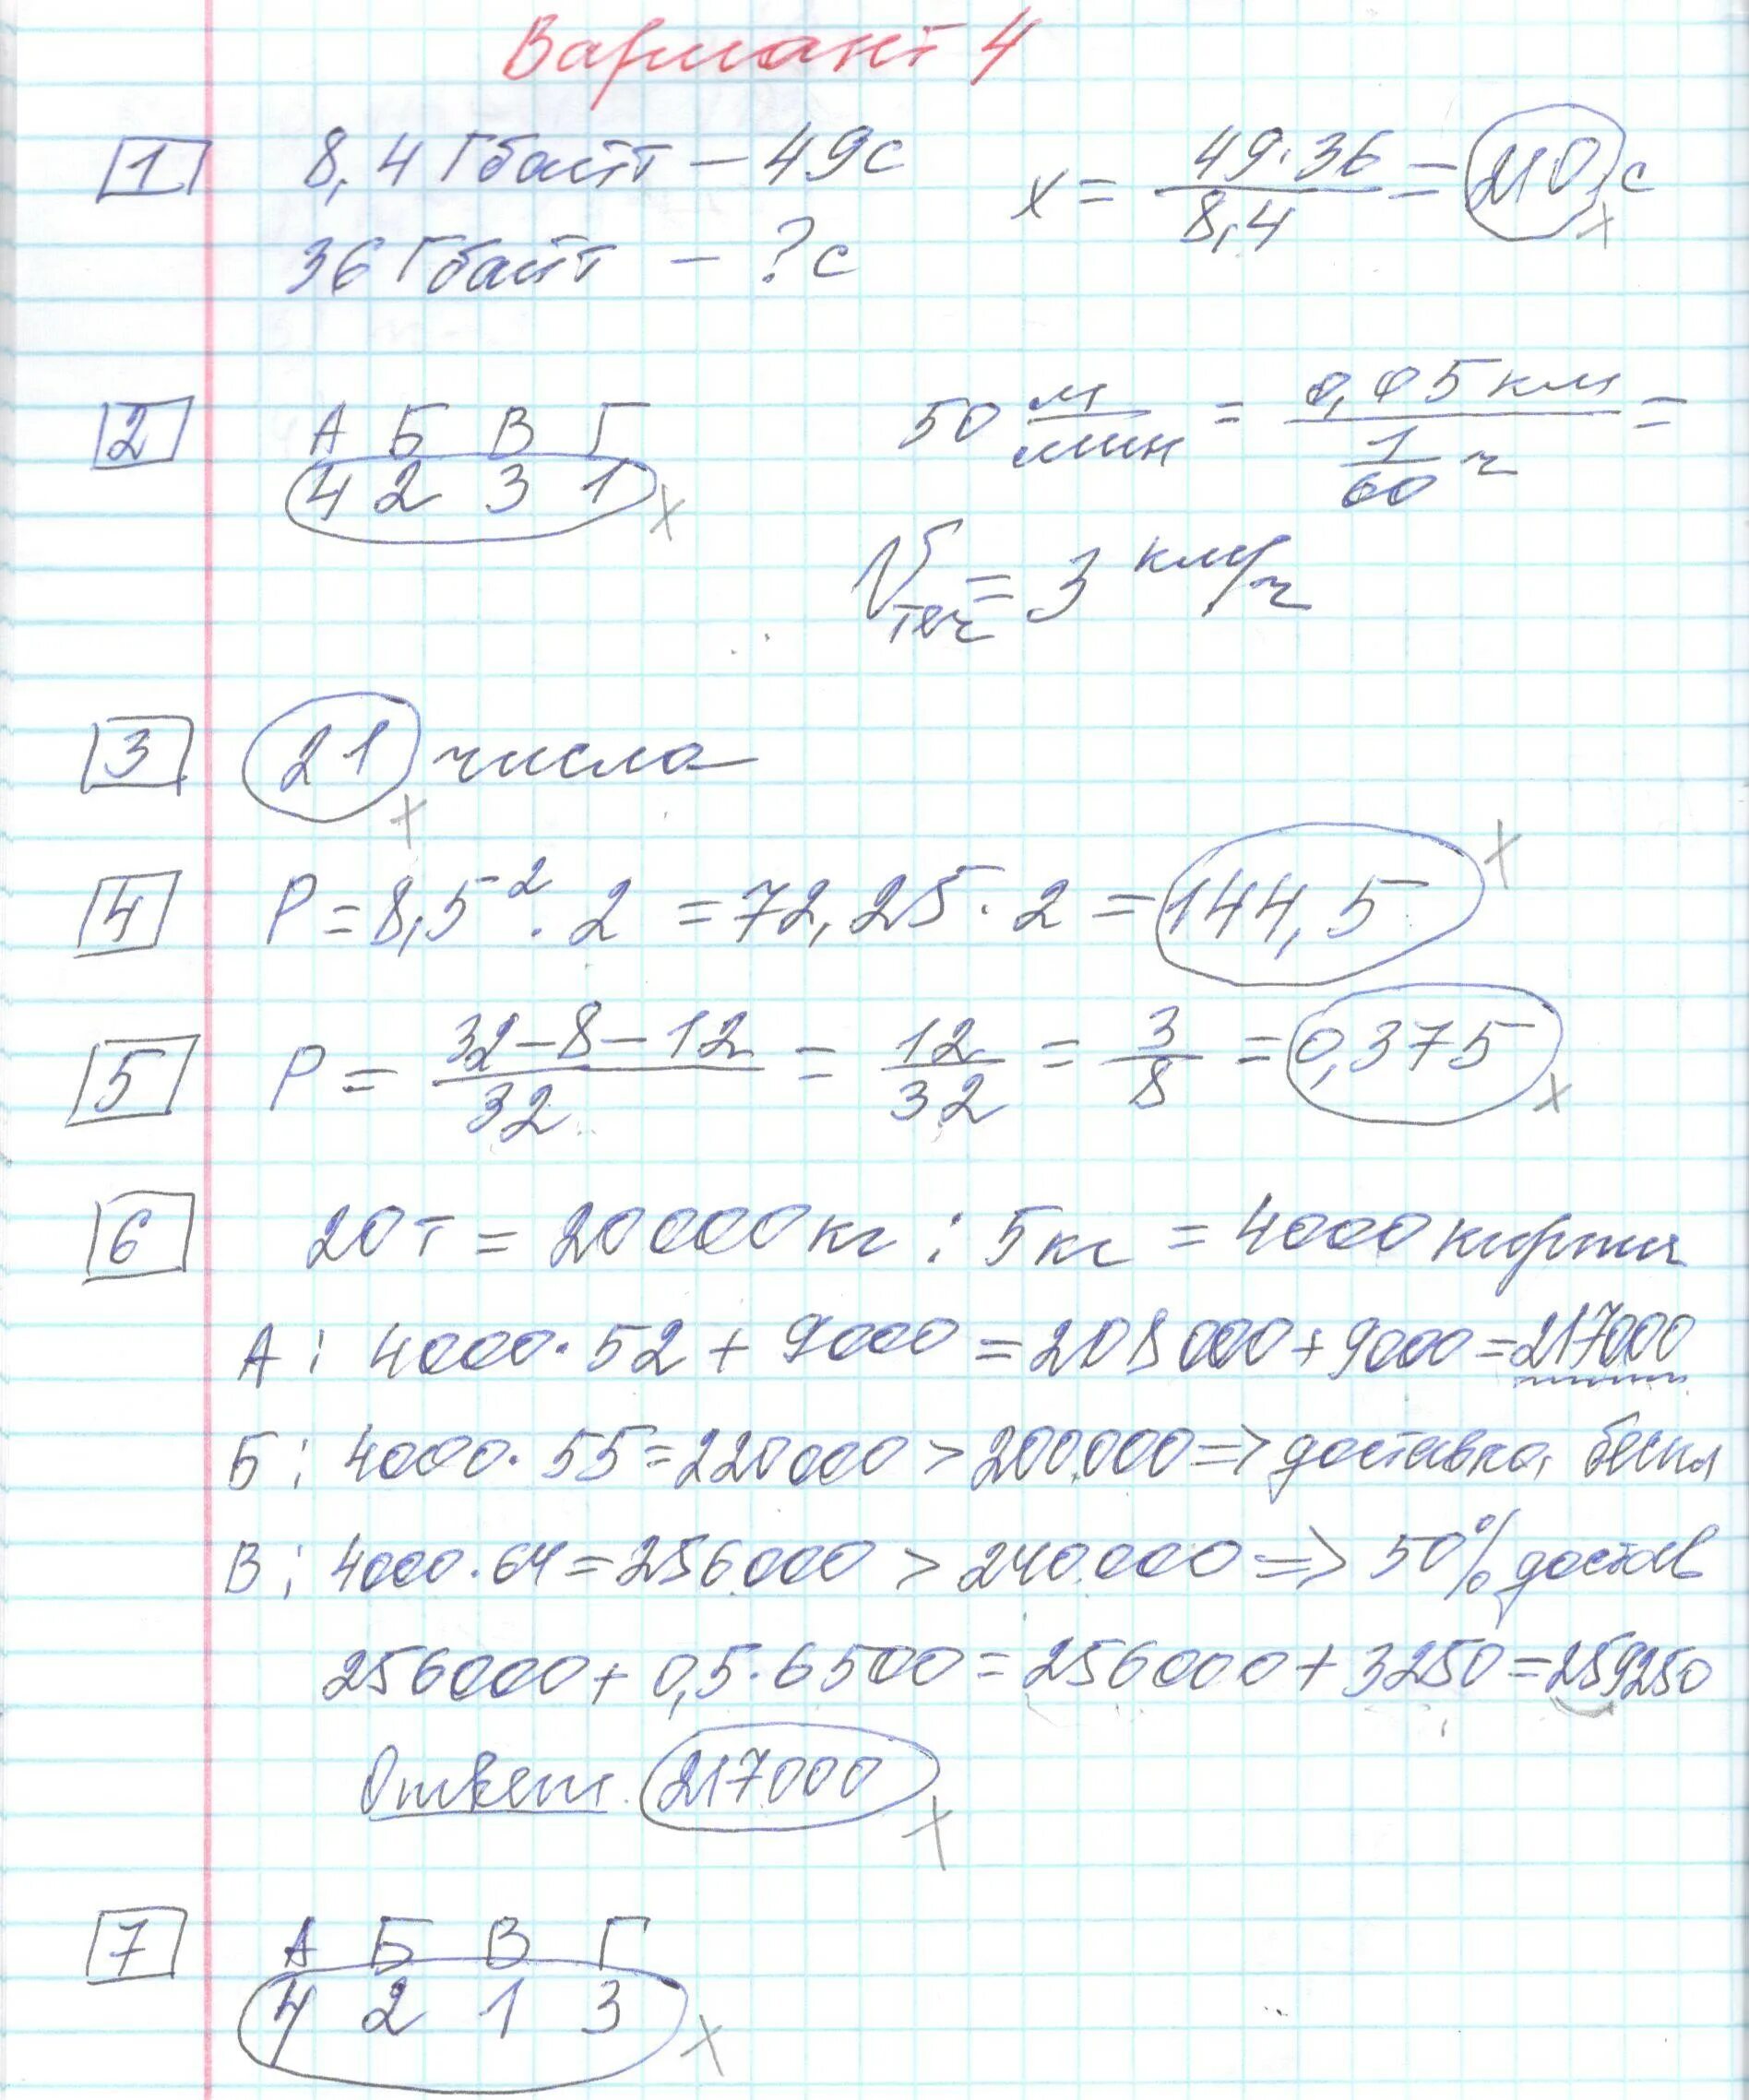 Вариант 4
1 8,4 Гбайт – 49с x = 49·36/8,4 = 210 с x
36 Гбайт – ?с
2 А Б В Г 50 м/мин = 0,05 км / 1/60 ч =
4 2 3 1 x
Vтеч = 3 км/ч
3 21 числа x
4 P = 8,5² · 2 = 72,25 · 2 = 144,5 x
5 P = 32–8–12/32 = 12/32 = 3/8 = 0,375 x
6 20 т = 20000 кг : 5 кг = 4000 кирпич
А: 4000·52 + 9000 = 208000 + 9000 = 217000
Б: 4000·55 = 220000 > 200.000 => доставка беспл
В: 4000·64 = 256000 > 240.000 => 50% достав
256000 + 0,5·6500 = 256000 + 3250 = 259250
Ответ. 217000 x
7 А Б В Г
4 2 1 3 x